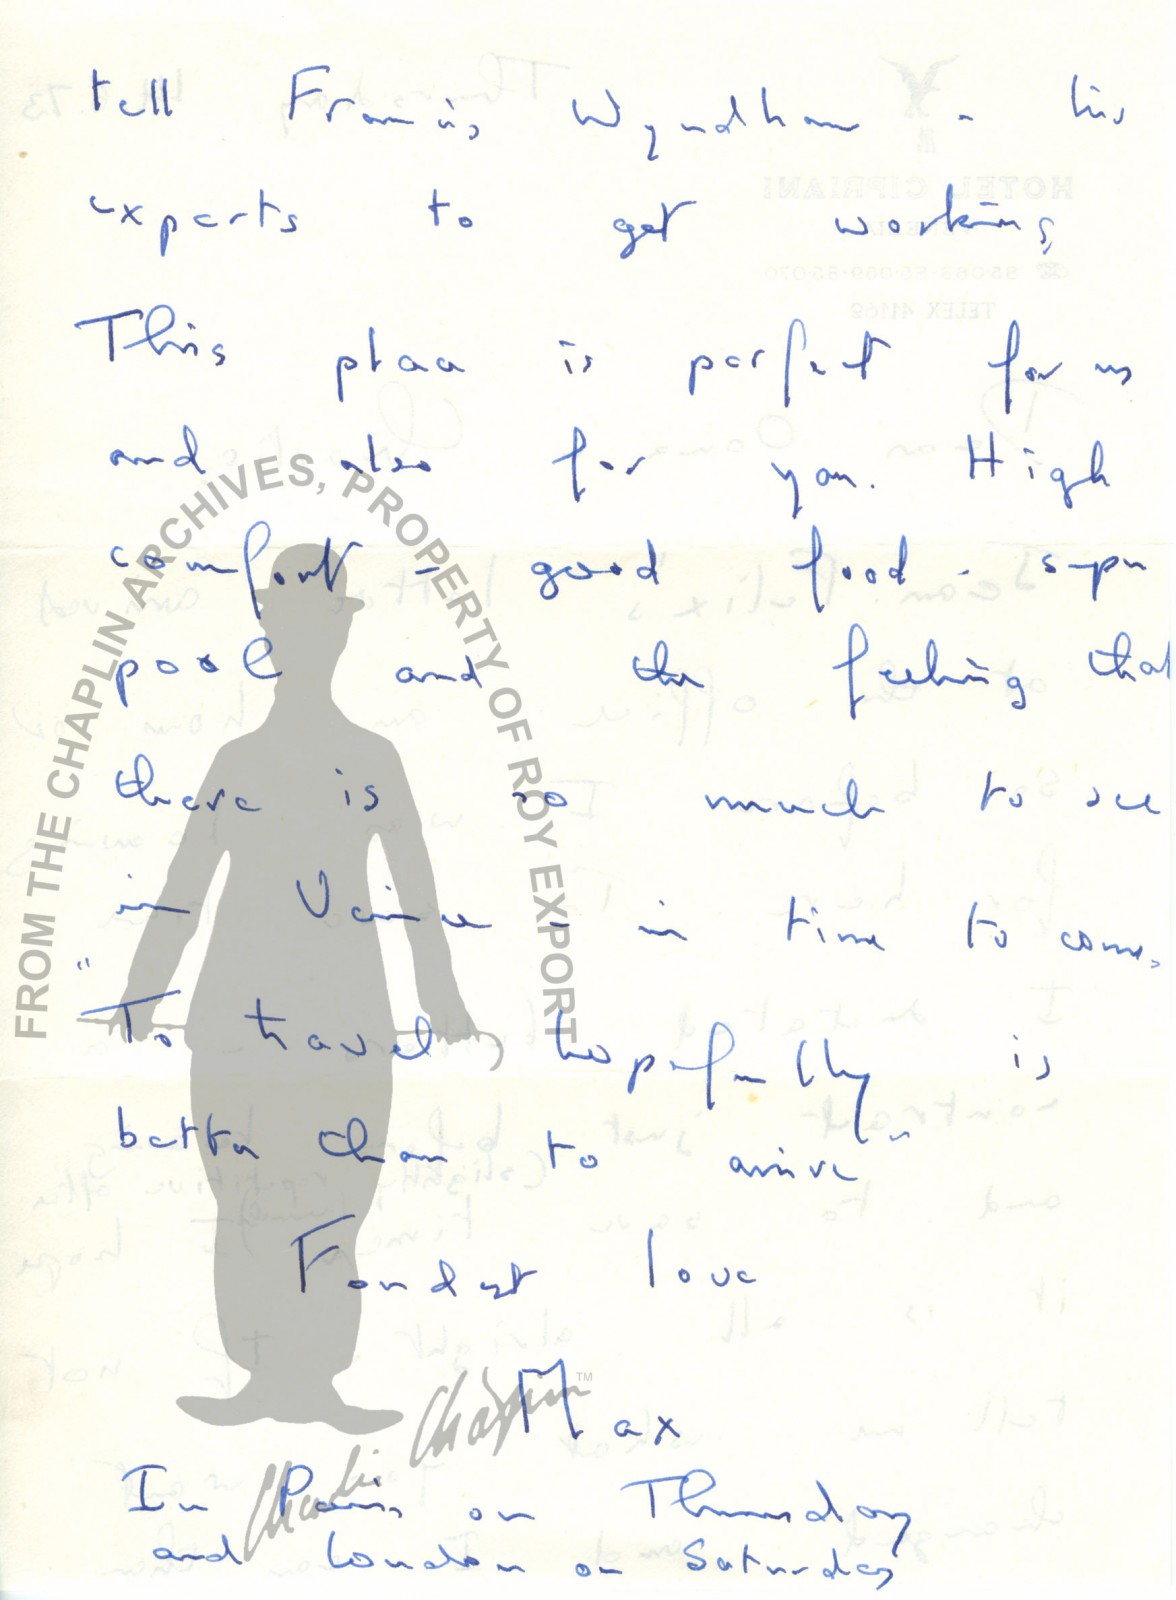 tell Francis Wyndham - his
experts to get working
This place is perfect for us
and also for you. High
comfort - good food - super
pool and the feeling that
there is so much to see
in Venice - in time to come.
"To travel hopefully is
better than to arrive"
Fondest love
Max
In Paris on Thursday
and London on Saturday
FROM THE CHAPLIN ARCHIVES, PROPERTY OF ROY EXPORT
Charlie Chaplin™
HOTEL CIPRIANI
TELEX 41162